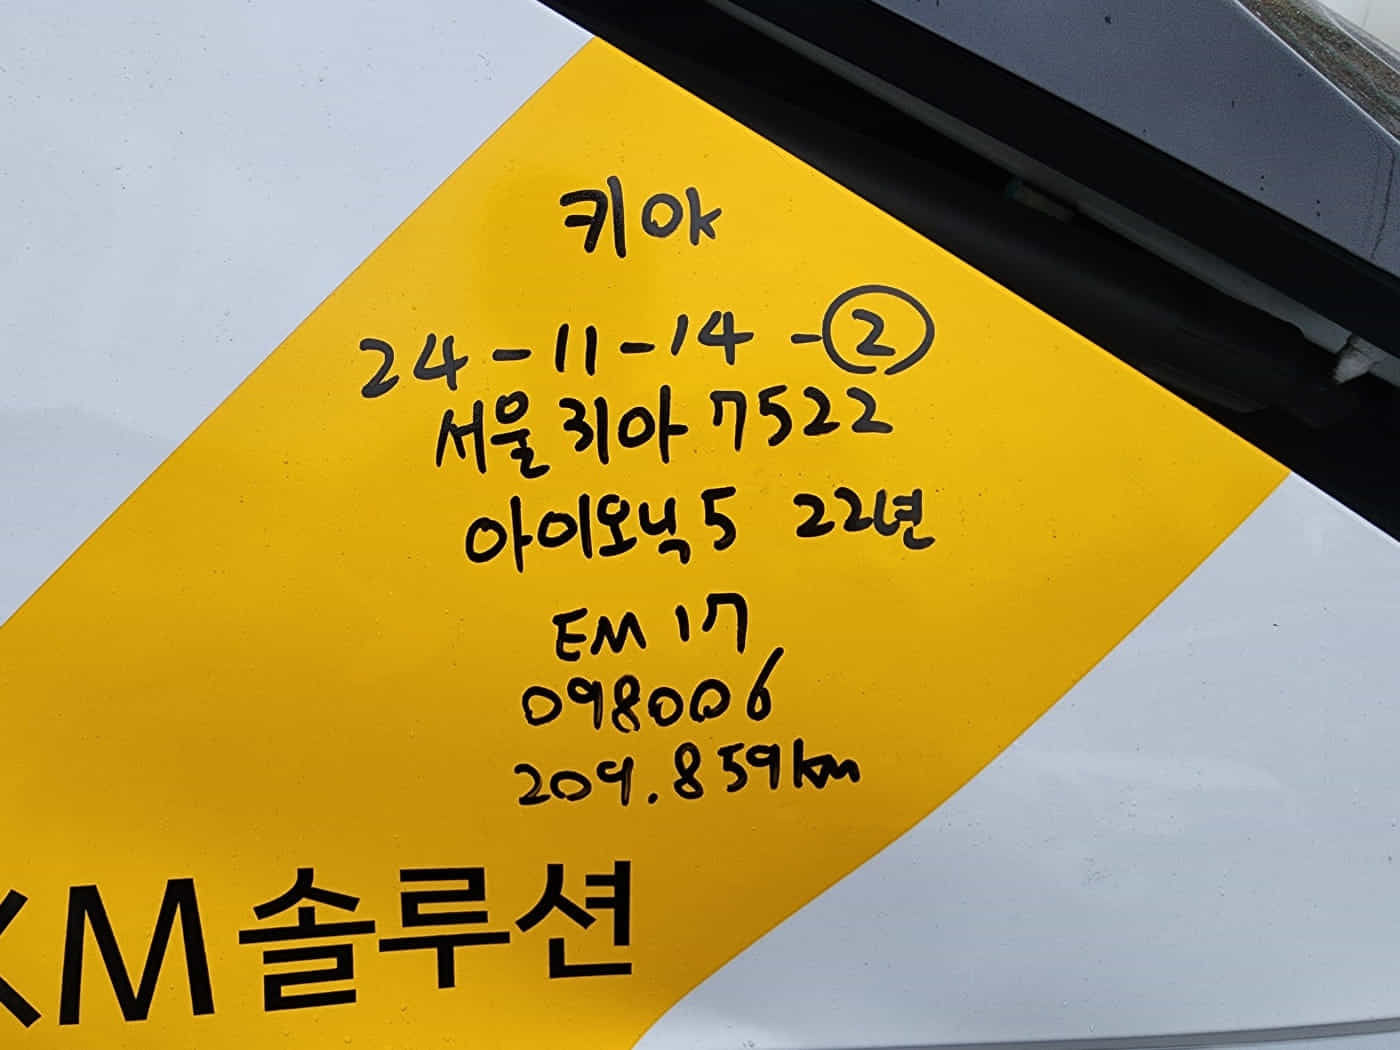 키 ok
24-11-14-②
서울 31아 7522
아이오닉5 22년
EM 17
098006
209.859km
KM솔루션